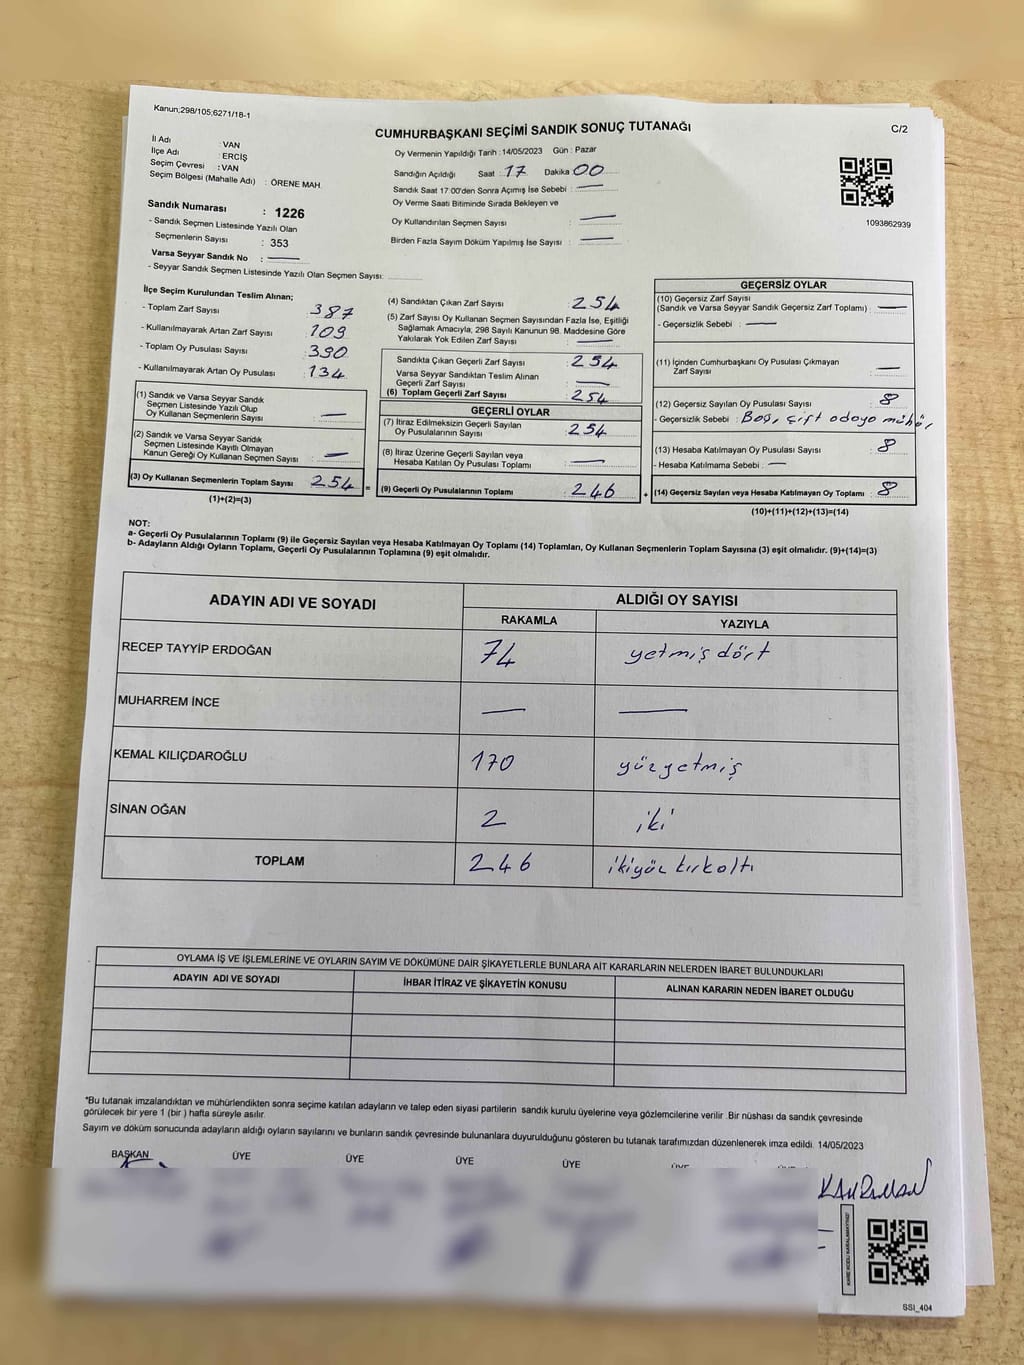 Kanun;298/105;6271/18-1
CUMHURBAŞKANI SEÇİMİ SANDIK SONUÇ TUTANAĞI
C/2
İl Adı : VAN
İlçe Adı : ERCİŞ
Seçim Çevresi : VAN
Seçim Bölgesi (Mahalle Adı) : ÖRENE MAH.
Sandık Numarası : 1226
- Sandık Seçmen Listesinde Yazılı Olan
Seçmenlerin Sayısı : 353
Varsa Seyyar Sandık No : —
- Seyyar Sandık Seçmen Listesinde Yazılı Olan Seçmen Sayısı:
Oy Vermenin Yapıldığı Tarih :14/05/2023 Gün : Pazar
Sandığın Açıldığı Saat : 17 Dakika : 00
Sandık Saat 17:00'den Sonra Açımış İse Sebebi : —
Oy Verme Saati Bitiminde Sırada Bekleyen ve
Oy Kullandırılan Seçmen Sayısı : —
Birden Fazla Sayım Döküm Yapılmış İse Sayısı : —
1093862939
İlçe Seçim Kurulundan Teslim Alınan;
- Toplam Zarf Sayısı : 387
- Kullanılmayarak Artan Zarf Sayısı : 109
- Toplam Oy Pusulası Sayısı : 390
- Kullanılmayarak Artan Oy Pusulası : 134
(1) Sandık ve Varsa Seyyar Sandık
Seçmen Listesinde Yazılı Olup
Oy Kullanan Seçmenlerin Sayısı : —
(2) Sandık ve Varsa Seyyar Sandık
Seçmen Listesinde Kayıtlı Olmayan
Kanun Gereği Oy Kullanan Seçmen Sayısı : —
(3) Oy Kullanan Seçmenlerin Toplam Sayısı : 254
(1)+(2)=(3)
(4) Sandıktan Çıkan Zarf Sayısı : 254
(5) Zarf Sayısı Oy Kullanan Seçmen Sayısından Fazla İse, Eşitliği
Sağlamak Amacıyla, 298 Sayılı Kanunun 98. Maddesine Göre
Yakılarak Yok Edilen Zarf Sayısı : —
Sandıkta Çıkan Geçerli Zarf Sayısı : 254
Varsa Seyyar Sandıktan Teslim Alınan
Geçerli Zarf Sayısı : —
(6) Toplam Geçerli Zarf Sayısı : 254
GEÇERLİ OYLAR
(7) İtiraz Edilmeksizin Geçerli Sayılan
Oy Pusulalarının Sayısı : 254
(8) İtiraz Üzerine Geçerli Sayılan veya
Hesaba Katılan Oy Pusulası Toplamı : —
= (9) Geçerli Oy Pusulalarının Toplamı : 246 +
GEÇERSİZ OYLAR
(10) Geçersiz Zarf Sayısı
(Sandık ve Varsa Seyyar Sandık Geçersiz Zarf Toplamı) : —
- Geçersizlik Sebebi : —
(11) İçinden Cumhurbaşkanı Oy Pusulası Çıkmayan
Zarf Sayısı : —
(12) Geçersiz Sayılan Oy Pusulası Sayısı : 8
- Geçersizlik Sebebi : Boş, çift odaya mühür
(13) Hesaba Katılmayan Oy Pusulası Sayısı : 8
- Hesaba Katılmama Sebebi : —
(14) Geçersiz Sayılan veya Hesaba Katılmayan Oy Toplamı : 8
(10)+(11)+(12)+(13)=(14)
NOT:
a- Geçerli Oy Pusulalarının Toplamı (9) ile Geçersiz Sayılan veya Hesaba Katılmayan Oy Toplamı (14) Toplamları, Oy Kullanan Seçmenlerin Toplam Sayısına (3) eşit olmalıdır. (9)+(14)=(3)
b- Adayların Aldığı Oyların Toplamı, Geçerli Oy Pusulalarının Toplamına (9) eşit olmalıdır.
ADAYIN ADI VE SOYADI ALDIĞI OY SAYISI
RAKAMLA YAZIYLA
RECEP TAYYİP ERDOĞAN 74 yetmiş dört
MUHARREM İNCE — —
KEMAL KILIÇDAROĞLU 170 yüzyetmiş
SİNAN OĞAN 2 iki
TOPLAM 246 ikiyüz kırkaltı
OYLAMA İŞ VE İŞLEMLERİNE VE OYLARIN SAYIM VE DÖKÜMÜNE DAİR ŞİKAYETLERLE BUNLARA AİT KARARLARIN NELERDEN İBARET BULUNDUKLARI
ADAYIN ADI VE SOYADI İHBAR İTİRAZ VE ŞİKAYETİN KONUSU ALINAN KARARIN NEDEN İBARET OLDUĞU
*Bu tutanak imzalandıktan ve mühürlendikten sonra seçime katılan adayların ve talep eden siyasi partilerin sandık kurulu üyelerine veya gözlemcilerine verilir .Bir nüshası da sandık çevresinde
görülecek bir yere 1 (bir ) hafta süreyle asılır.
Sayım ve döküm sonucunda adayların aldığı oyların sayılarını ve bunların sandık çevresinde bulunanlara duyurulduğunu gösteren bu tutanak tarafımızdan düzenlenerek imza edildi. 14/05/2023
BAŞKAN ÜYE ÜYE ÜYE ÜYE
KAHRAMAN
SSI_404